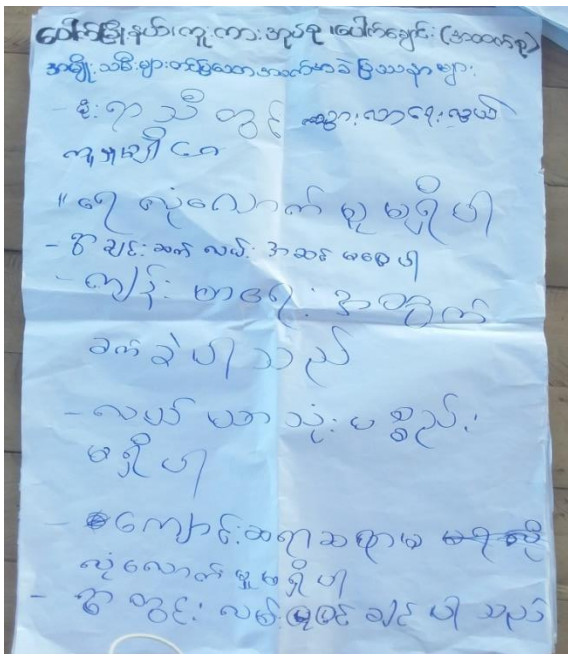 ပေါက်မြို့နယ်၊ကူးကားအုပ်စု၊ပေါက်ချောင်း (အထက်စု)
အမျိုးသမီးများတင်ပြသောအခက်အခဲပြဿနာများ
- မိုးရာသီတွင် သွားလာရေးလွယ်
ကူမှုမရှိ
" ရေ လုံလောက် မှု မရှိ ပါ
- ရွာချင်းဆက် လမ်း အဆင် မပြေပါ
- ကျန်းမာရေး အတွက်
ခက်ခဲပါသည်
- လယ်ယာသုံးပစ္စည်း
မရှိပါ
- ကျောင်းဆရာဆရာမ
လုံလောက်မှုမရှိပါ
- ရွာတွင်းလမ်းပြုပြင်ချင်ပါသည်